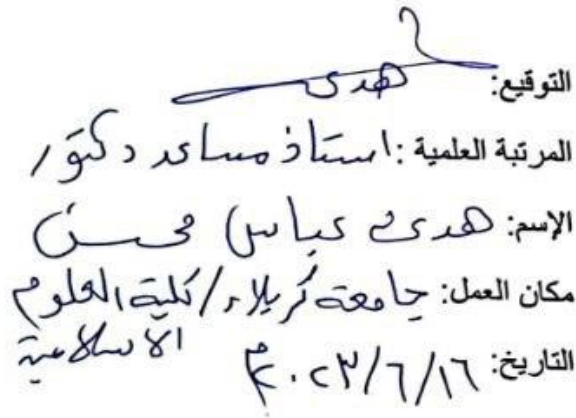 التوقيع: هدى
المرتبة العلمية: استاذ مساعد دكتور
الإسم: هدى عباس محسن
مكان العمل: جامعة كربلاء/كلية العلوم
الاسلامية
التاريخ: ٢٠٢٣/٦/١٦م